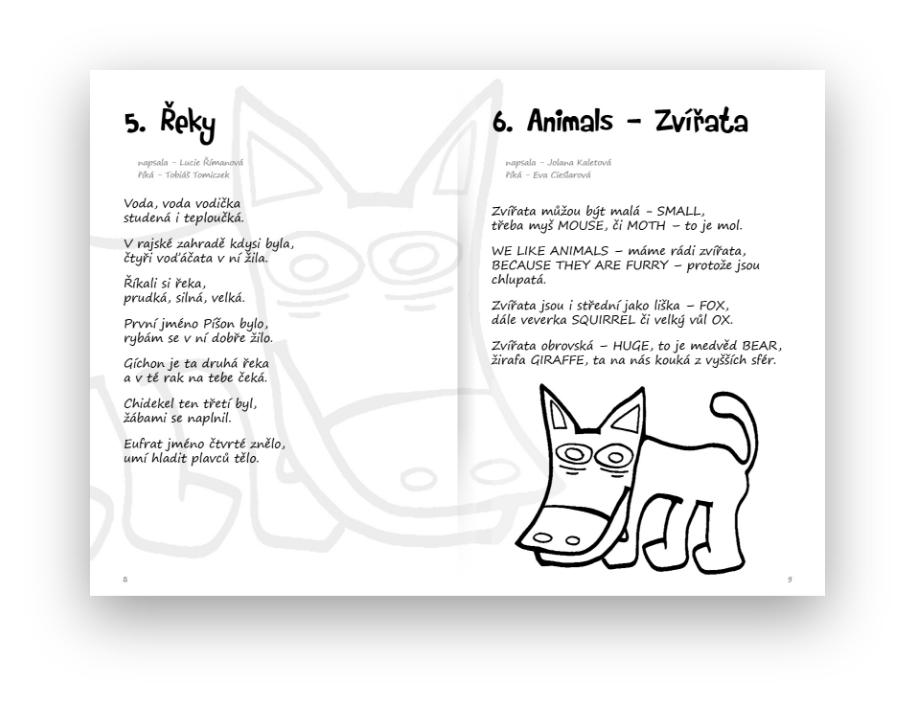 5. Řeky
napsala – Lucie Římanová
říká – Tobiáš Tomiczek
Voda, voda vodička
studená i teploučká.
V rajské zahradě kdysi byla,
čtyři voďáčata v ní žila.
Říkali si řeka,
prudká, silná, velká.
První jméno Píšon bylo,
rybám se v ní dobře žilo.
Gíchon je ta druhá řeka
a v té rak na tebe čeká.
Chidekel ten třetí byl,
žábami se naplnil.
Eufrat jméno čtvrté znělo,
umí hladit plavců tělo.
8
6. Animals – Zvířata
napsala – Jolana Kaletová
říká – Eva Cieślarová
Zvířata můžou být malá - SMALL,
třeba myš MOUSE, či MOTH – to je mol.
WE LIKE ANIMALS – máme rádi zvířata,
BECAUSE THEY ARE FURRY – protože jsou
chlupatá.
Zvířata jsou i střední jako liška – FOX,
dále veverka SQUIRREL či velký vůl OX.
Zvířata obrovská – HUGE, to je medvěd BEAR,
žirafa GIRAFFE, ta na nás kouká z vyšších sfér.
9